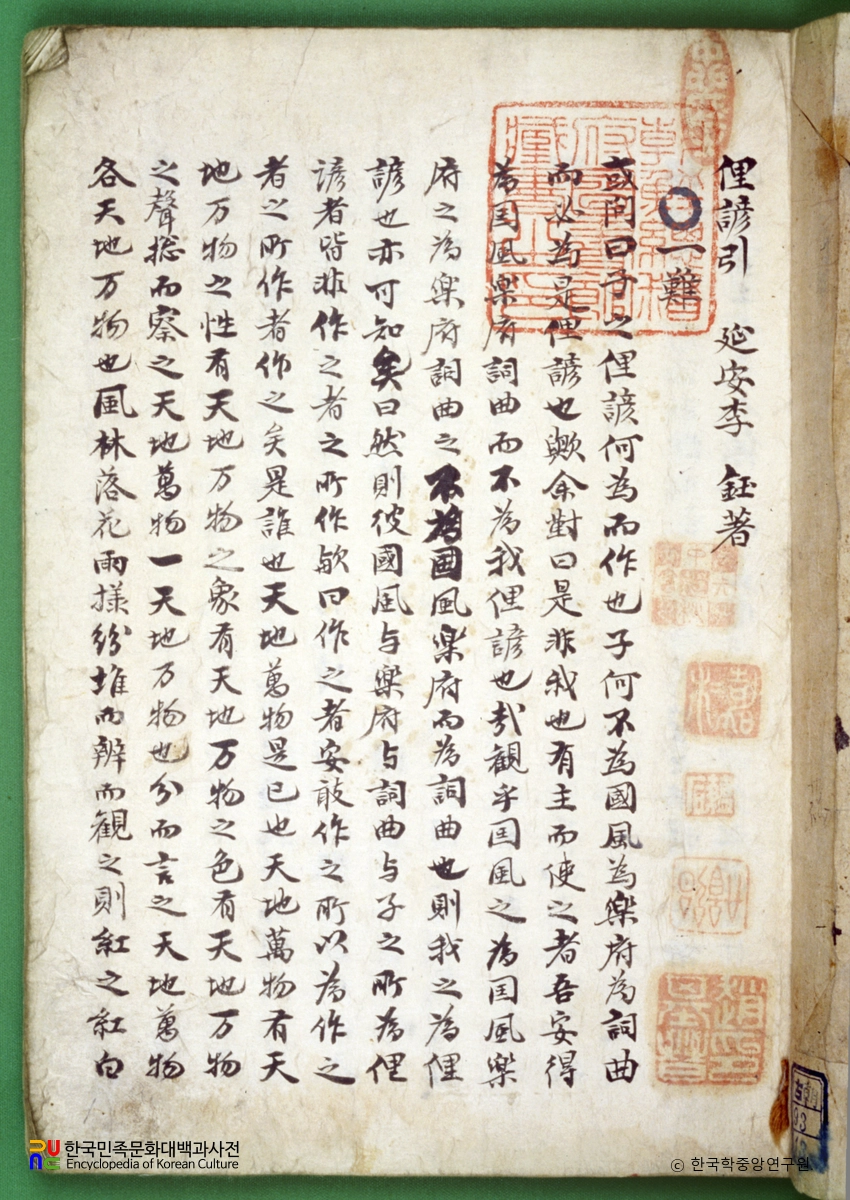 俚諺引　延安李　鈺著
一難
或問曰子之俚諺何為而作也子何不為國風為樂府為詞曲
而必為是俚諺也歟余對曰是非我也有主而使之者吾安得
為国風樂府詞曲而不為我俚諺也哉觀乎国風之為国風樂
府之為樂府詞曲之不為国風樂府而為詞曲也則我之為俚
諺也亦可知矣曰然則彼國風与樂府与詞曲与子之所為俚
諺者皆非作之者之所作欤曰作之者安敢作之所以為作之
者之所作者作之矣是誰也天地萬物是已也天地萬物有天
地万物之性有天地万物之象有天地万物之色有天地万物
之聲捴而察之天地萬物一天地万物也分而言之天地萬物
各天地万物也風林落花雨樣紛堆而辨而観之則紅之紅白
한국민족문화대백과사전
Encyclopedia of Korean Culture
© 한국학중앙연구원